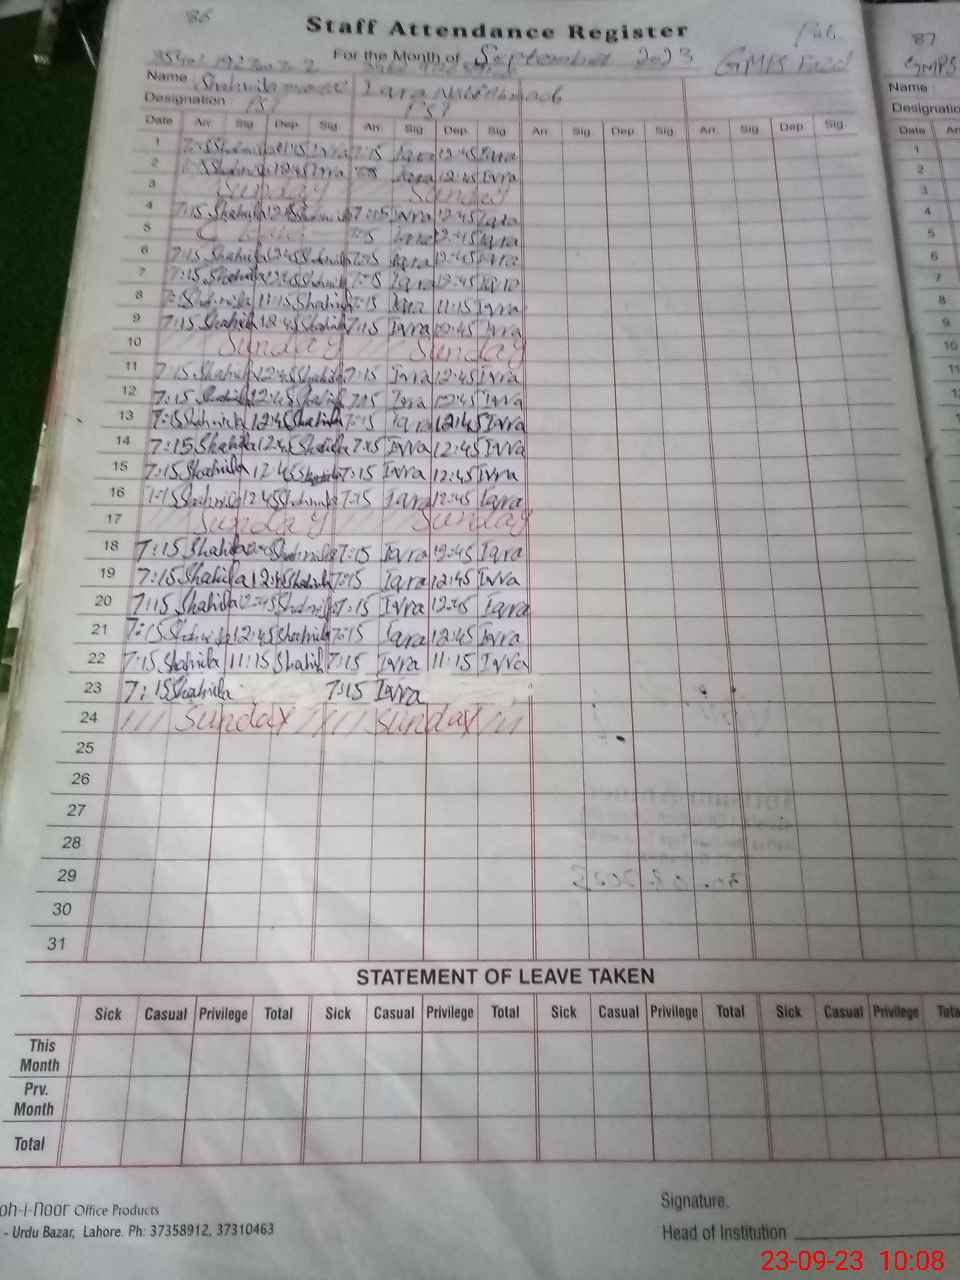 86
Staff Attendance Register
For the Month of September 2023 GMPS
Name Shahnila Iqra
Designation PST PST
Date Arr. Sig. Dep. Sig. Arr. Sig. Dep. Sig. Arr. Sig. Dep. Sig. Arr. Sig. Dep. Sig.
1 7:15 Shahnila 12:45 Iqra 7:15 Iqra 12:45 Iqra
2 7:15 Shahnila 12:45 Iqra 7:15 Iqra 12:45 Iqra
3 Sunday Sunday
4 7:15 Shahnila 12:45 Shahnila 7:15 Iqra 12:45 Iqra
5 C Leave 7:15 Iqra 12:45 Iqra
6 7:15 Shahnila 12:45 Shahnila 7:15 Iqra 12:45 Iqra
7 7:15 Shahnila 12:45 Shahnila 7:15 Iqra 12:45 Iqra
8 7:15 Shahnila 11:15 Shahnila 7:15 Iqra 11:15 Iqra
9 7:15 Shahnila 12:45 Shahnila 7:15 Iqra 12:45 Iqra
10 Sunday Sunday
11 7:15 Shahnila 12:45 Shahnila 7:15 Iqra 12:45 Iqra
12 7:15 Shahnila 12:45 Shahnila 7:15 Iqra 12:45 Iqra
13 7:15 Shahnila 12:45 Shahnila 7:15 Iqra 12:45 Iqra
14 7:15 Shahnila 12:45 Shahnila 7:15 Iqra 12:45 Iqra
15 7:15 Shahnila 12:45 Shahnila 7:15 Iqra 12:45 Iqra
16 7:15 Shahnila 12:45 Shahnila 7:15 Iqra 12:45 Iqra
17 Sunday Sunday
18 7:15 Shahnila 12:45 Shahnila 7:15 Iqra 12:45 Iqra
19 7:15 Shahnila 12:45 Shahnila 7:15 Iqra 12:45 Iqra
20 7:15 Shahnila 12:45 Shahnila 7:15 Iqra 12:45 Iqra
21 7:15 Shahnila 12:45 Shahnila 7:15 Iqra 12:45 Iqra
22 7:15 Shahnila 11:15 Shahnila 7:15 Iqra 11:15 Iqra
23 7:15 Shahnila 7:15 Iqra
24 Sunday Sunday
25
26
27
28
29
30
31
STATEMENT OF LEAVE TAKEN
Sick Casual Privilege Total Sick Casual Privilege Total Sick Casual Privilege Total Sick Casual Privilege
This Month
Prv. Month
Total
oh-i-noor Office Products
- Urdu Bazar, Lahore. Ph: 37358912, 37310463
Signature.
Head of Institution
87
GMPS
Name
Designatio
Date
1
2
3
4
5
6
7
8
9
10
11
23-09-23 10:08